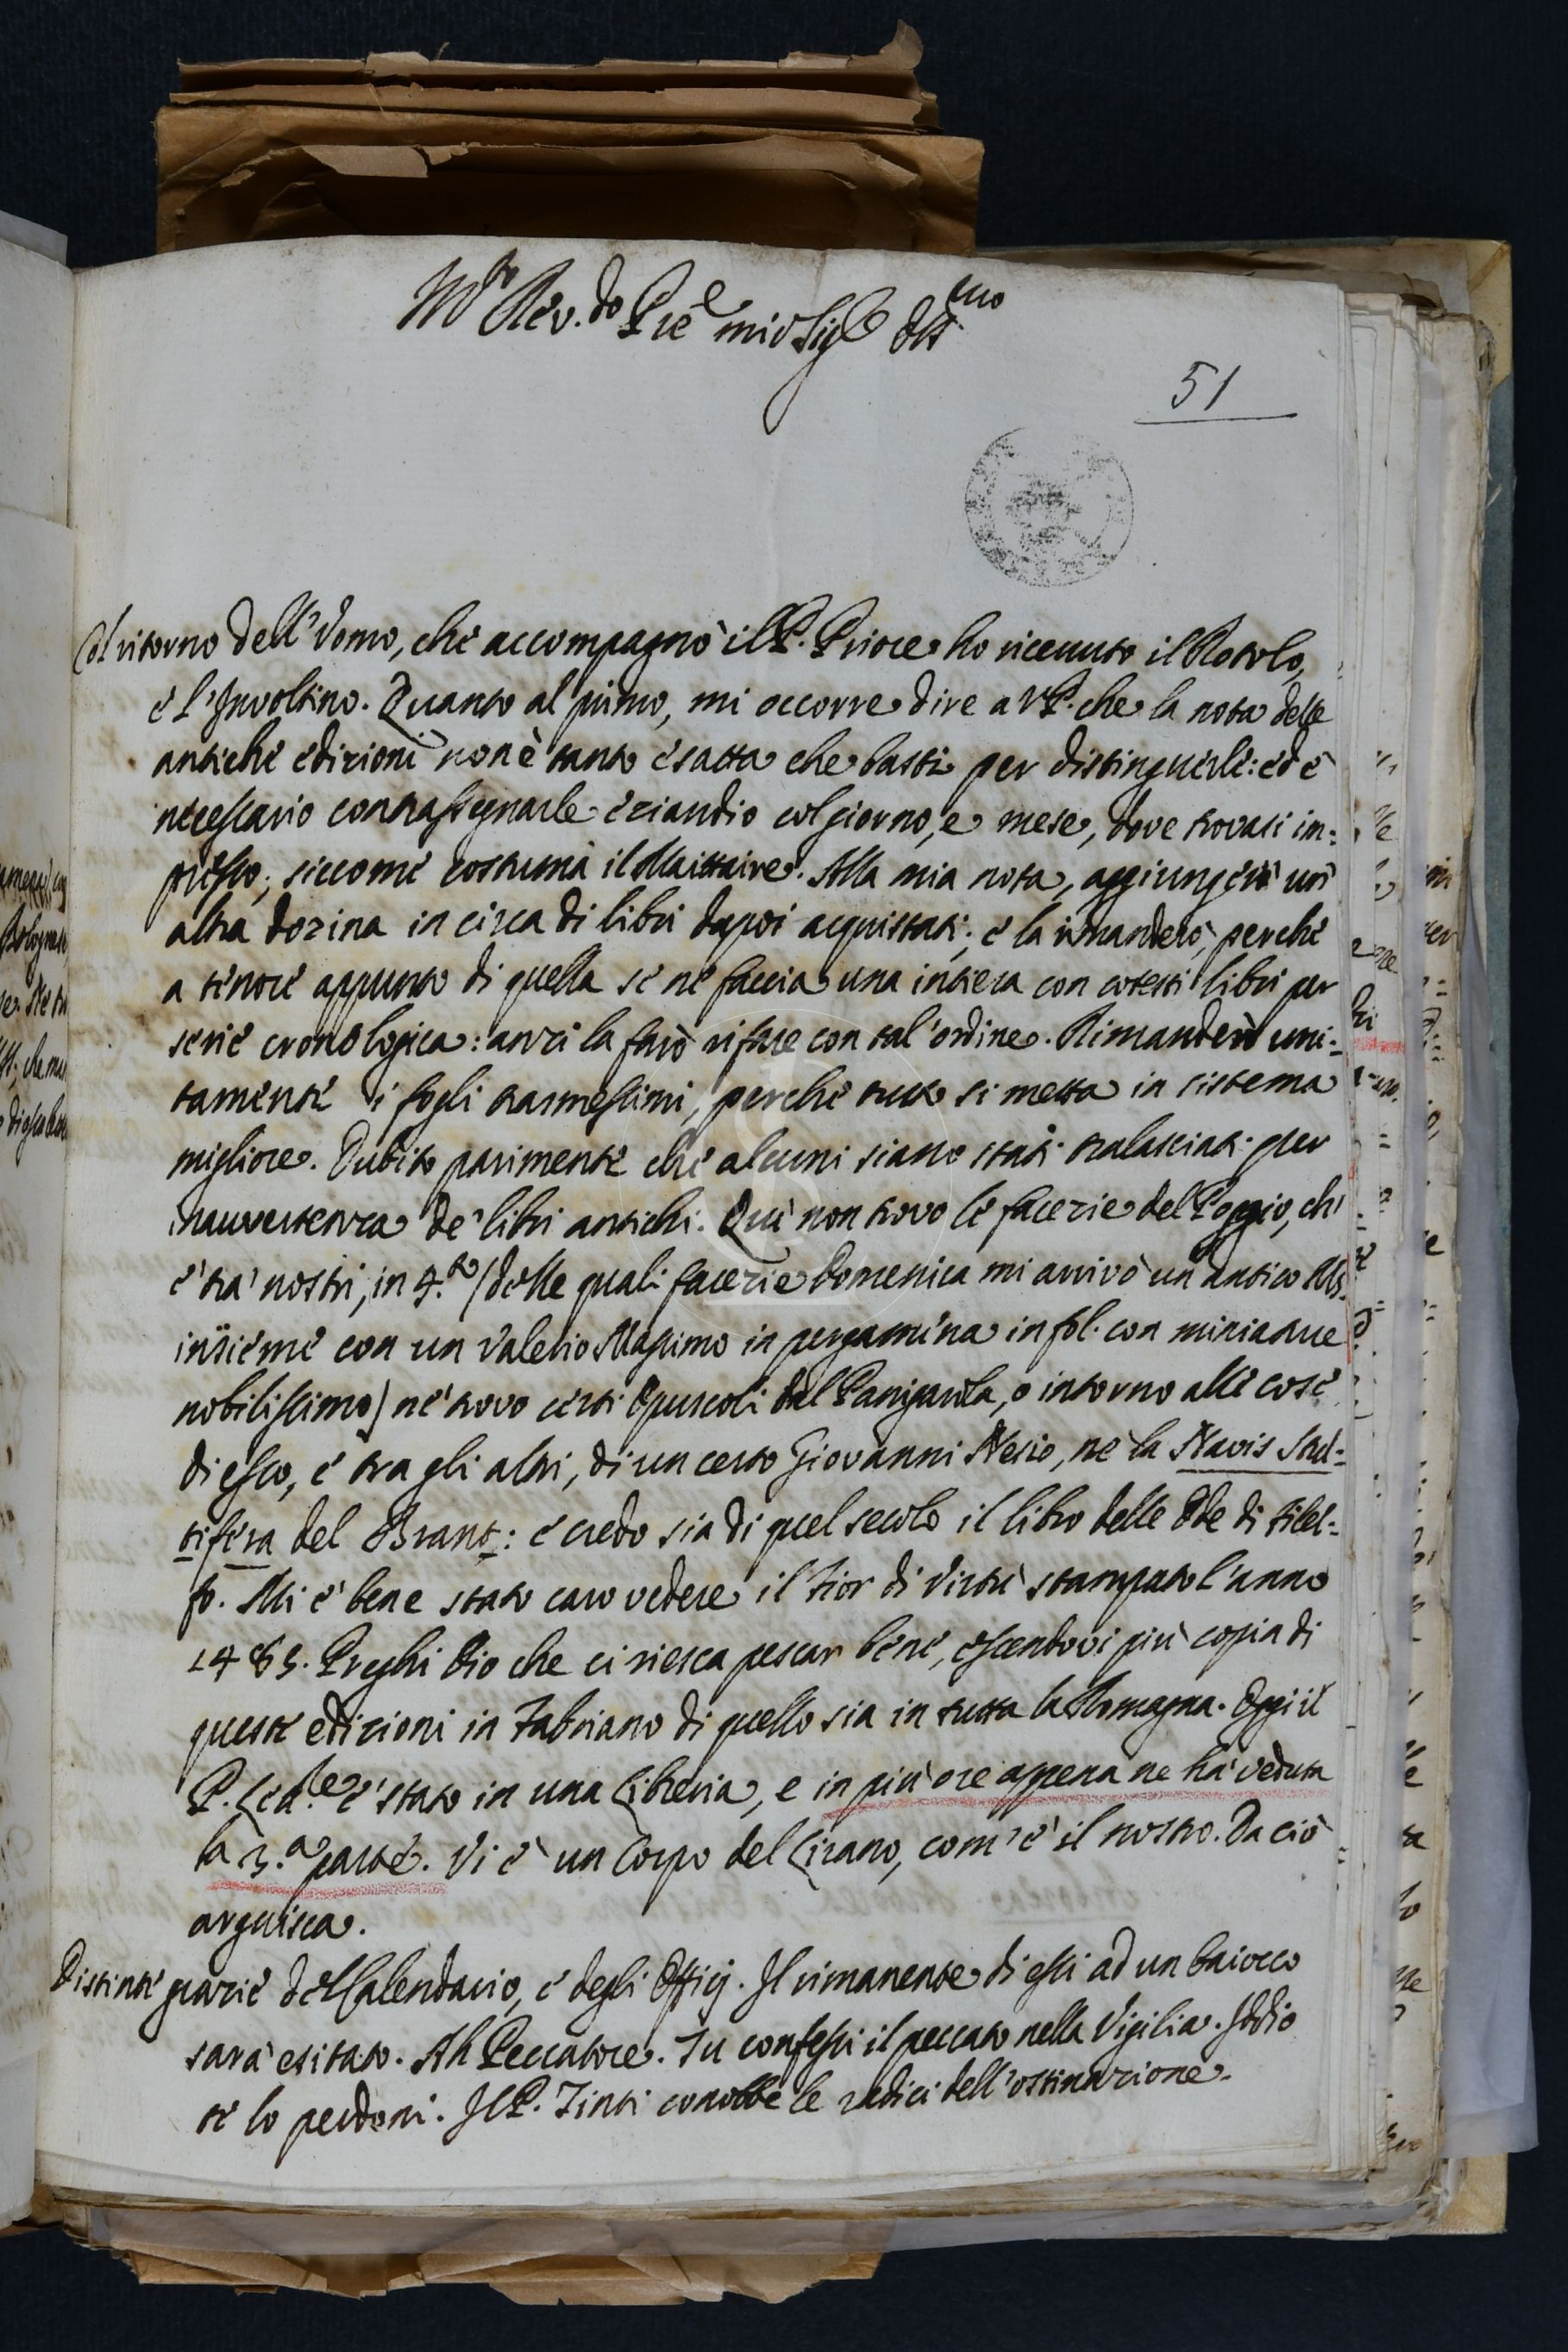 M.to Rev.do P.re mio Sig.e Oss.mo
51
Col ritorno dell'Vomo, che accompagnò il P. Priore ho ricevuto il Rotolo,
e l'Involtino. Quanto al primo, mi occorre dire a V.P. che la nota delle
antiche edizioni non è tanto esatta che basti per distinguerle: ed è
necessario contrassegnarle eziandio col giorno, e mese, dove trovasi im=
presso; siccome costuma il Maittaire. Alla mia nota, aggiungerò un'
altra dozina in circa di libri dapoi acquistati; e la rimanderò, perchè
a tenore appunto di quella se ne faccia una intiera con cotesti libri per
serie cronologica: anzi la farò rifare con tal'ordine. Rimanderò uni=
tamente i fogli trasmessimi, perchè tutto si metta in sistema
migliore. Dubito parimente che alcuni siano stati tralasciati per
inavvertenza de' libri antichi. Quì non trovo le facezie del Poggio, ch'
è trà nostri, in 4.to (delle quali facezie Domenica mi arrivò un antico Ms.
insieme con un Valerio Massimo in pergamena in fol. con miniature
nobilissimo) nè trovo certi Opuscoli del Panigarola, o intorno alle cose
di esso, e tra gli altri, di un certo Giovanni Nesio, nè la Navis Stul=
tifera del Brant: e credo sia di quel secolo il libro delle Ode di Filel=
fo. Mi è bene stato caro vedere il Fior di Virtù stampato l'anno
1483. Preghi Dio che ci riesca pescar bene, essendovi più copia di
queste edizioni in Fabriano di quello sia in tutta la Romagna. Oggi il
P. è stato in una Libreria, e in più ore appena ne hà veduta
la 3.a parte. Vi è un Corpo del Lirano, com'è il nostro. Da ciò
arguisca.
Distinte grazie del Calendario, e degli Officj. Il rimanente di essi ad un baiocco
sarà esitato. Ah Peccatore. Tu confessi il peccato nella Vigilia. Iddio
te lo perdoni. Il P. Tinti conobbe le radici dell'ostinazione.